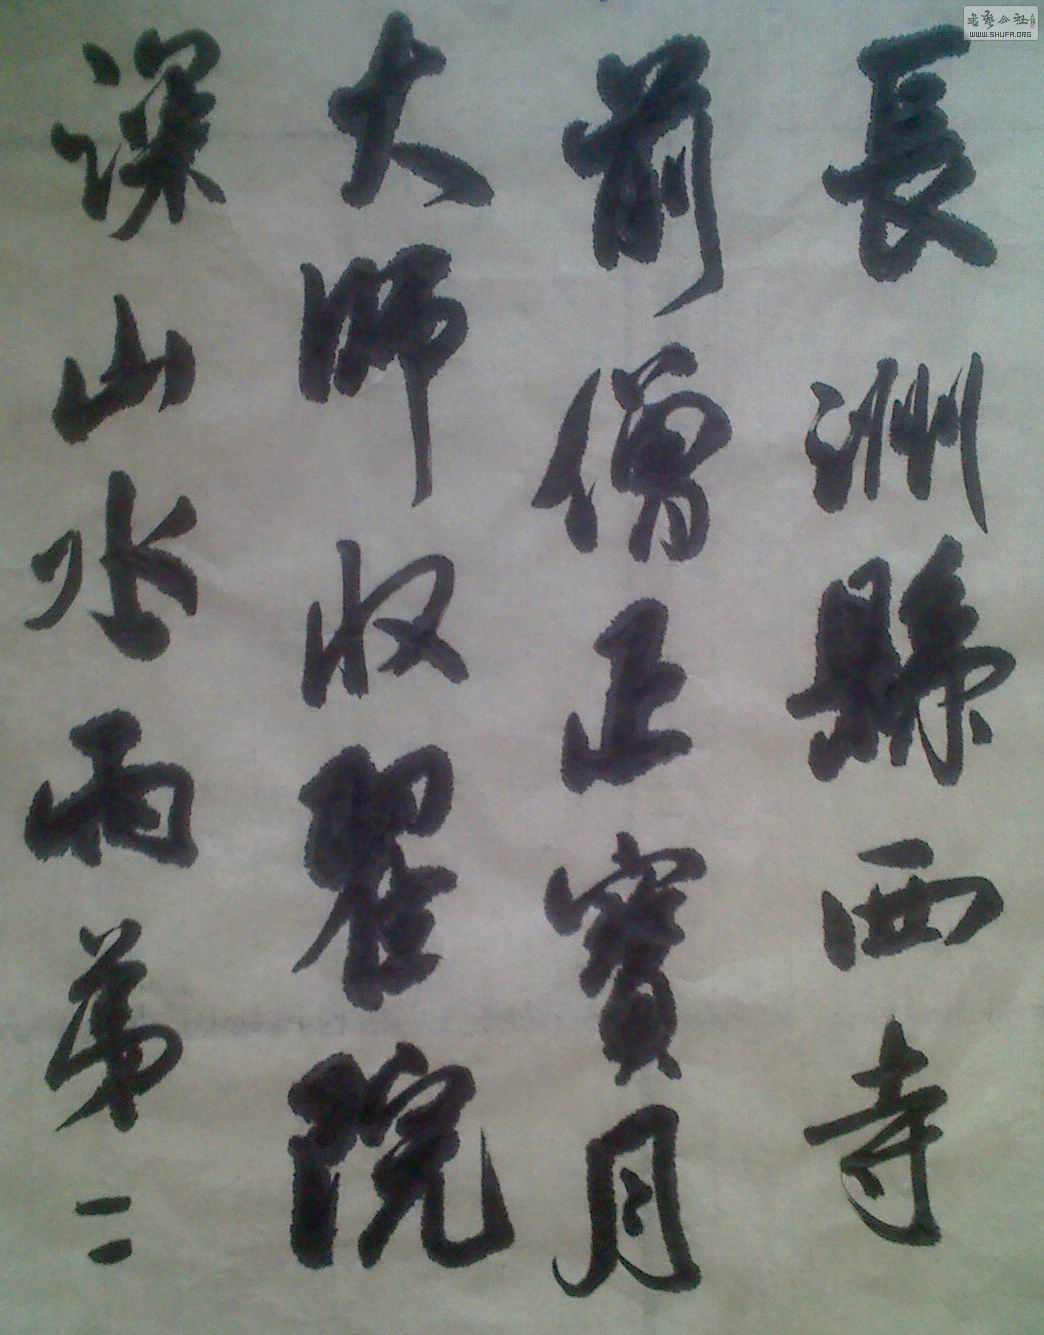 長洲縣西寺
前僧正寶月
大師收翟院
深山水兩第二
書藝公社
WWW.SHUFA.ORG